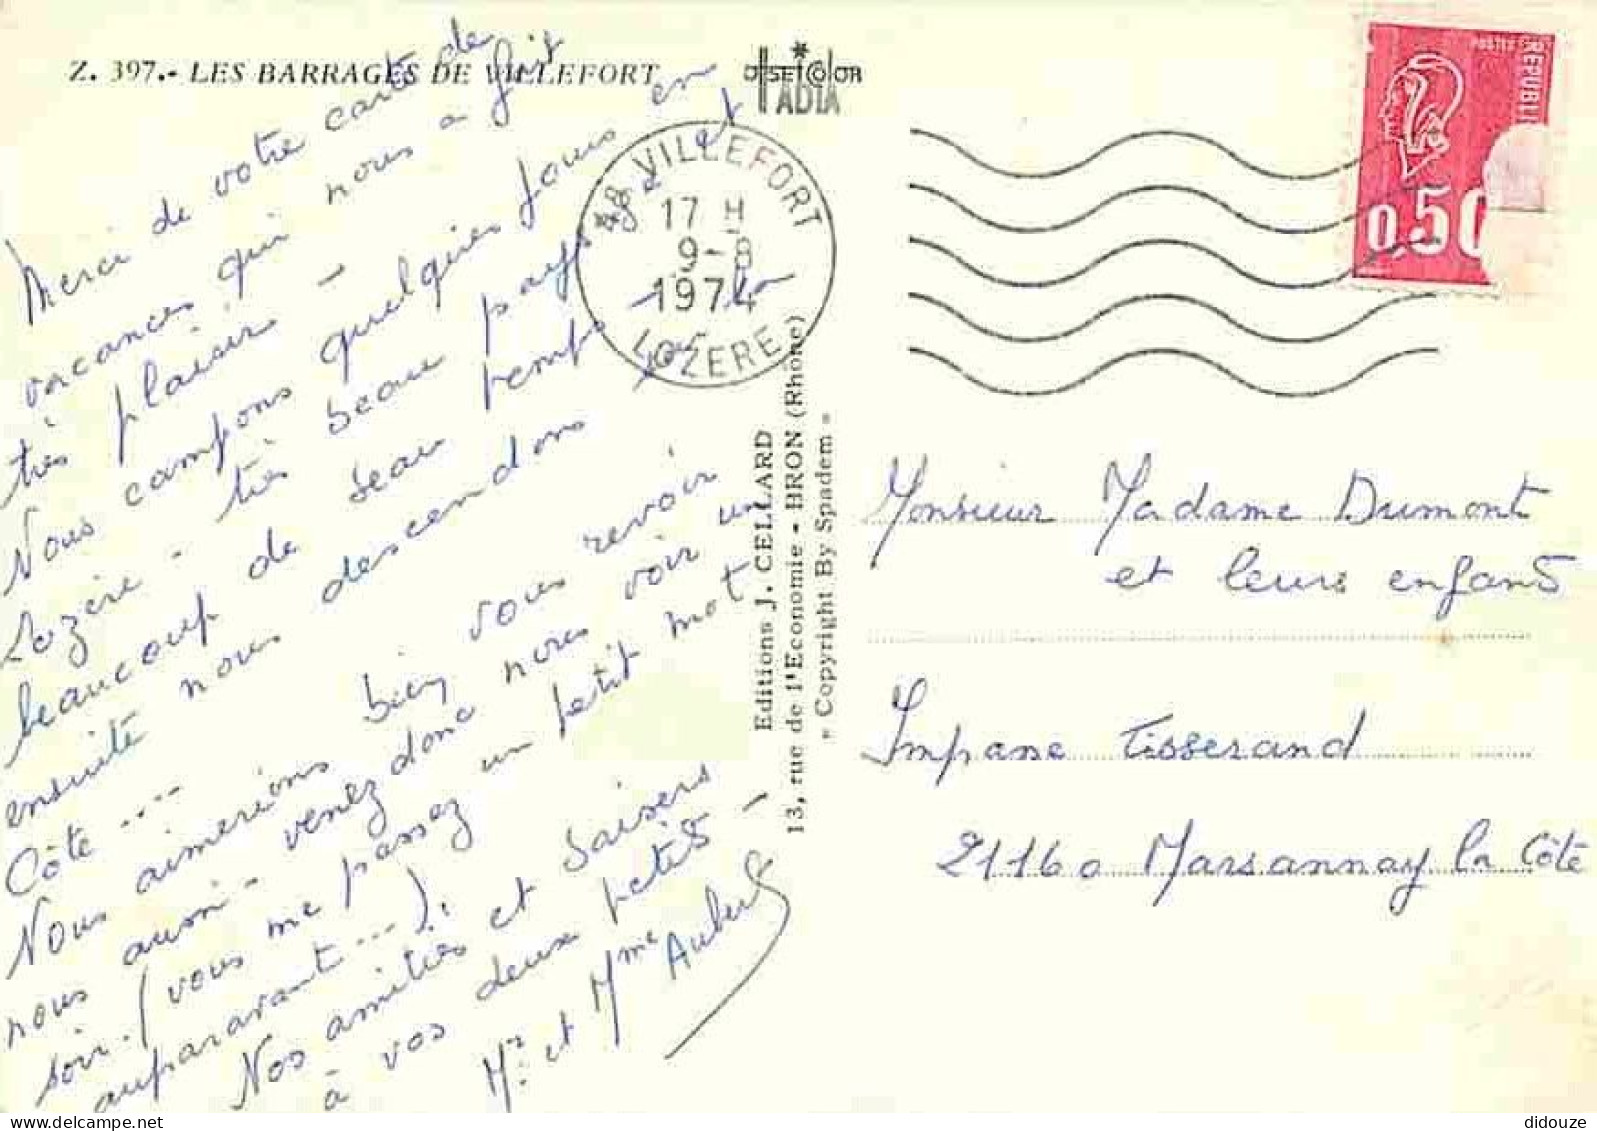 Z. 397.- LES BARRAGES DE VILLEFORT
OFFSET COLOR
IADIA
POSTES
REPUBLI
0.50
48 VILLEFORT
17 H
9-8
1974
LOZERE
Merci de votre carte de
vacances qui nous a fait
très plaisir -
Nous campons quelques jours en
Lozère - très beau pays et
beaucoup de beau temps -
ensuite nous descendons sur la
Côte ....
Nous aimerions bien vous revoir
nous aussi - venez donc nous voir un
soir. (vous me passez un petit mot
auparavant ...).
Nos amitiés et baisers
à vos deux petits -
Mr. et Mme Aubert
Editions J. CELLARD
13, rue de l'Economie - BRON (Rhône)
" Copyright By Spadem "
Monsieur Madame Dumont
et leurs enfants
Impasse Tisserand
21160 Marsannay la Côte
didouze @ delcampe.net